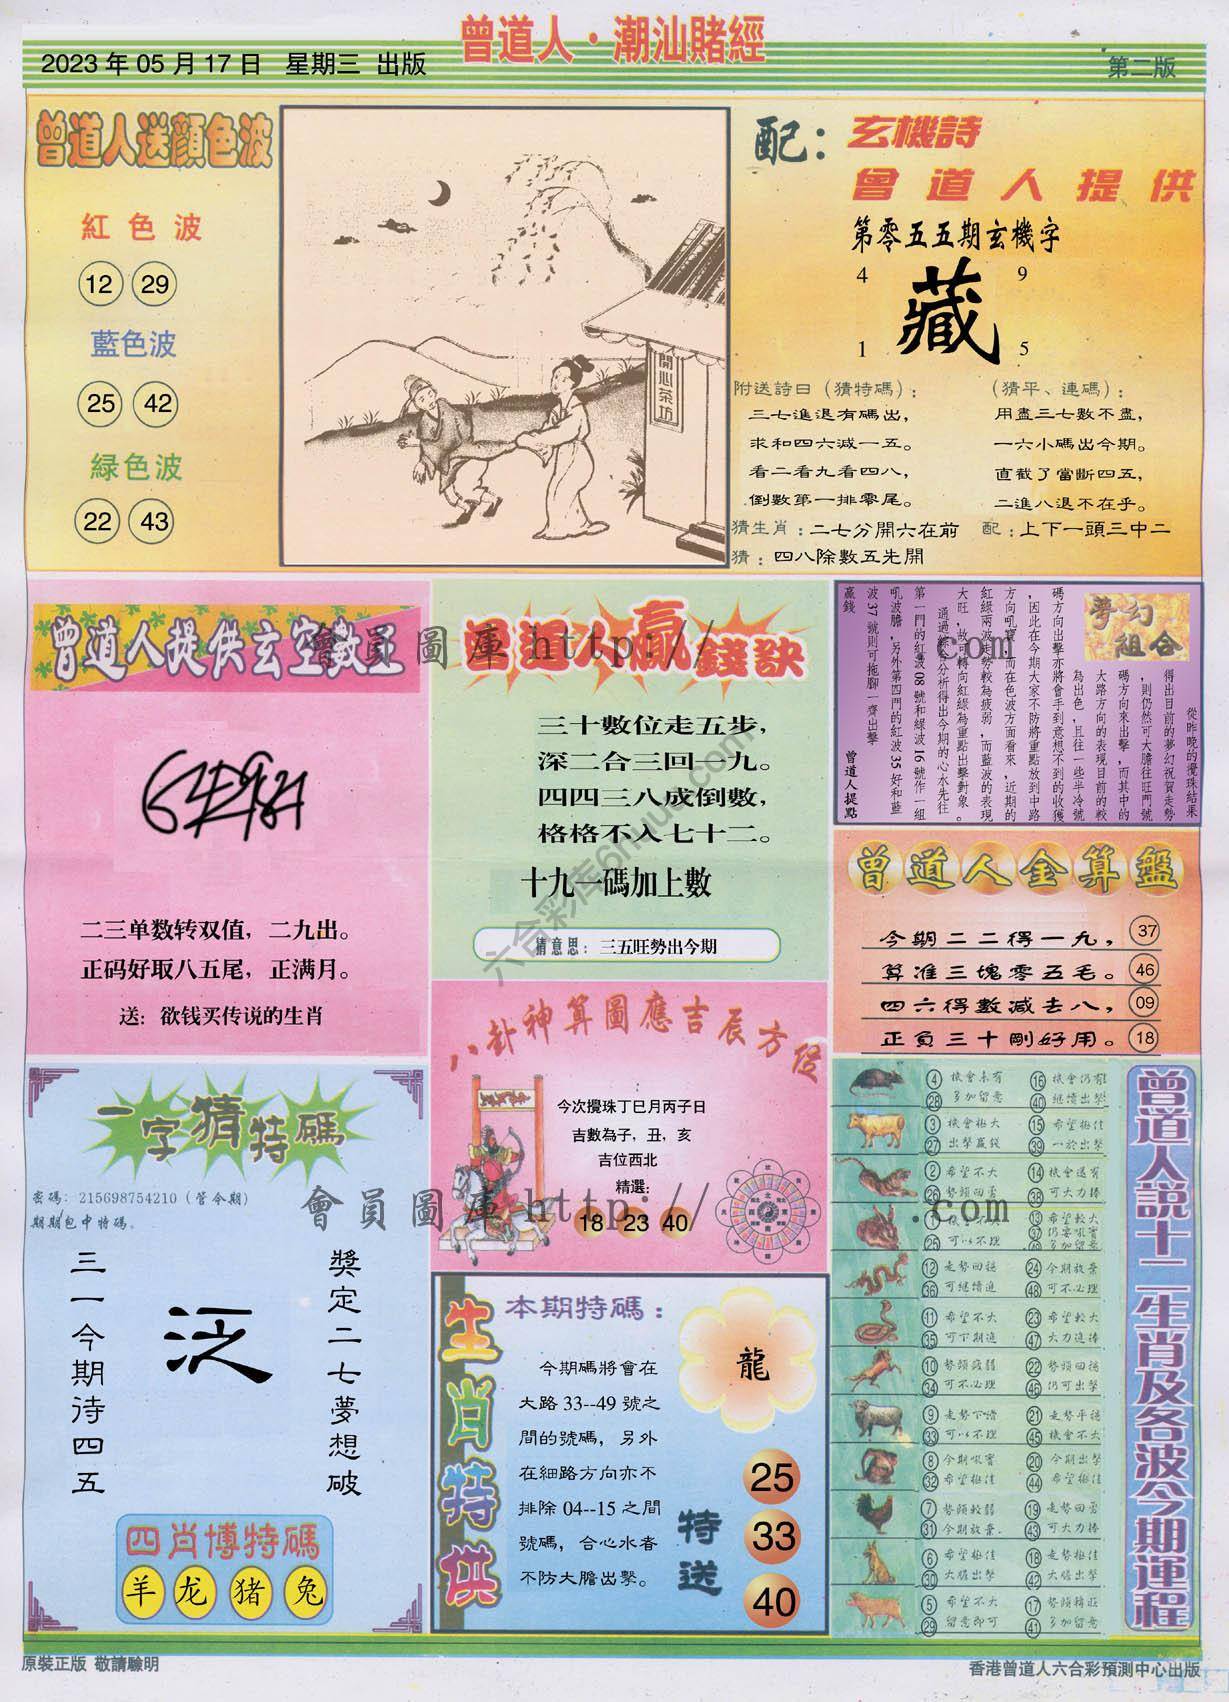 曾道人·潮汕賭經
2023 年 05 月 17 日 星期三 出版
第二版
曾道人送顏色波
紅色波
12 29
藍色波
25 42
緑色波
22 43
開心茶坊
配：玄機詩
曾道人提供
第零五五期玄機字
4 9
藏
1 5
附送詩曰（猜特碼）：
三七進退有碼出，
求和四六減一五。
看二看九看四八，
倒數第一排零尾。
（猜平、連碼）：
用盡三七數不盡，
一六小碼出今期。
直截了當斷四五，
二進八退不在乎。
猜生肖：二七分開六在前
配：上下一頭三中二
猜：四八除數五先開
曾道人提供玄空數王
二三单数转双值，二九出。
正码好取八五尾，正满月。
送：欲钱买传说的生肖
曾道人贏錢訣
三十數位走五步，
深二合三回一九。
四四三八成倒數，
格格不入七十二。
十九一碼加上數
猜意思：三五旺勢出今期
夢幻組合
從昨晚的攪珠結果
得出目前的夢幻祝賀走勢
，則仍然可大膽往旺門號
碼方向來出擊，而其中的
大路方向的表現目前的較
為出色，且往一些半冷號
碼方向出擊亦將會手到意想不到的收獲
，因此在今期大家不防將重點放到中路
方向吼寶，而在色波方面看來，近期的
紅綠兩波走勢較為疲弱，而藍波的表現
大旺，故可轉向紅綠為重點出擊對象。
通過綜合分析得出今期的心水先往
第一門的紅波 08 號和綠波 16 號作一組
吼波膽，另外第四門的紅波 35 好和藍
波 37 號則可拖腳一齊出擊
贏錢
曾道人提點
曾道人金算盤
今期二二得一九， 37
算准三塊零五毛。 46
四六得數減去八， 09
正負三十剛好用。 18
八卦神算圖應吉辰方位
今次攪珠丁巳月丙子日
吉數為子，丑，亥
吉位西北
精選：
18 23 40
一字猜特碼
密碼：215698754210（管今期）
期期包中特碼。
獎定二七夢想破
泛
三一今期待四五
四肖博特碼
羊 龙 猪 兔
生肖特供
本期特碼：
龍
今期碼將會在
大路 33--49 號之
間的號碼，另外
在細路方向亦不
排除 04--15 之間
號碼，合心水者
不防大膽出擊。
特送
25
33
40
曾道人説十二生肖及各波今期運程
4 28 機會未有 多加留意
16 40 機會仍有 繼續出擊
3 27 機會極大 出擊贏錢
15 39 希望極佳 一於出擊
2 26 希望不大 勢頭回勇
14 38 機會還有 可大力捧
1 25 機會不大 可以不理
13 37 49 希望較大 仍要吼實 多加留意
12 36 走勢回穩 可繼續追
24 48 今期放棄 可不必理
11 35 希望不大 可下期追
23 47 希望較大 大力追捧
10 34 勢頭疲弱 可不必理
22 46 勢頭回穩 仍可出擊
9 33 走勢下滑 可以不理
21 45 走勢平穩 機會不大
8 32 今期吼實 希望極佳
20 44 今期出擊 希望極佳
7 31 勢頭較弱 今期放棄.
19 43 走勢回勇 可大力捧
6 30 希望極佳 大膽出擊
18 42 走勢極佳 大膽出擊
5 29 希望不大 留意即可
17 41 勢頭精旺 多加留意
會員圖庫 http:// .com
會員圖庫 http:// .com
六合彩库6huu.com
原裝正版 敬請驗明
香港曾道人六合彩預測中心出版